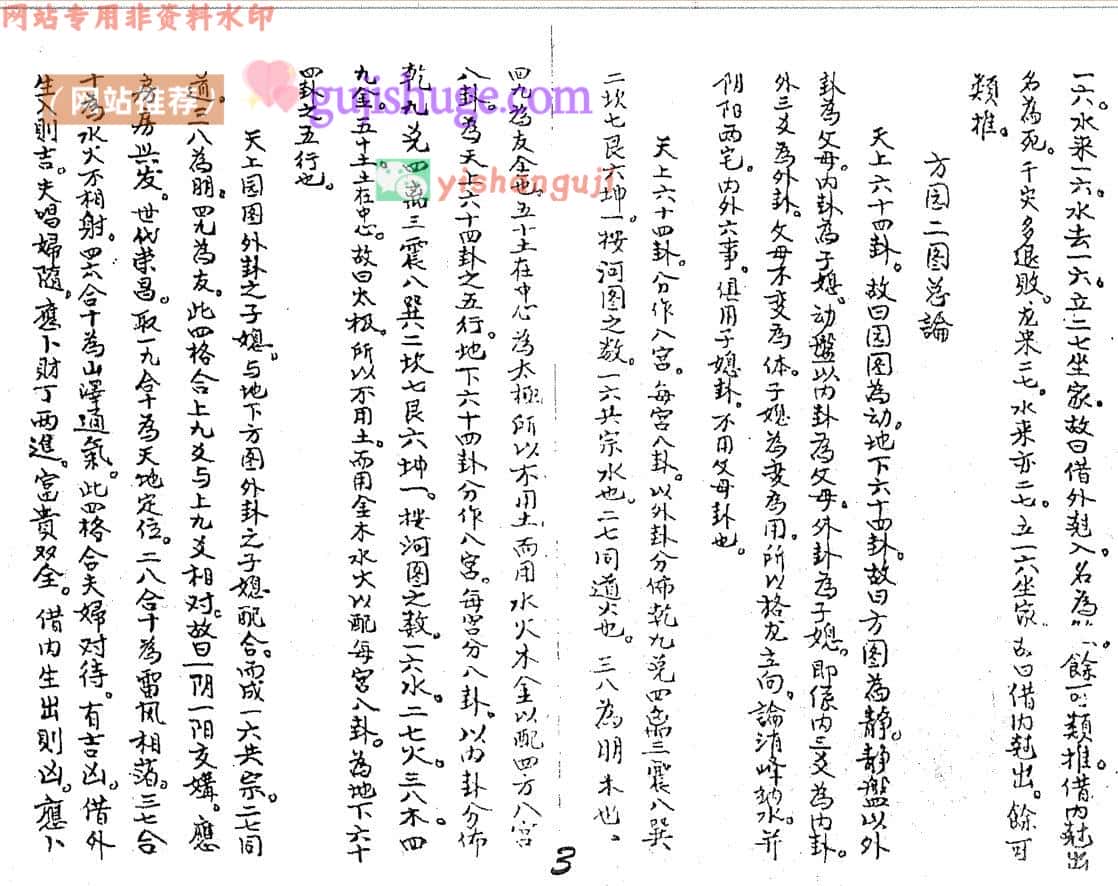 网站专用非资料水印
gujishuge.com
yishanguji
（网站推荐）
一六。水来一六。水去一六。立二七坐家。故曰借外尅入。名為 餘可類推。借内尅出
名為死。千灾多退败。龙来二七。水来亦二七。立一六坐家 曰借内尅出。餘可
類推。
方图二图总論
天上六十四卦。故曰园图為动。地下六十四卦。故曰方图為静。静盤以外
卦為父母。内卦為子媳。动盤以内卦為父母。外卦為子媳。即係内三爻為内卦。
外三爻為外卦。父母不变為体。子媳為变為用。所以格龙立向。論消峰納水。并
阴阳西宅。内外六事。俱用子媳卦。不用父母卦也。
天上六十四卦。分作八宫。每宫八卦。以外卦分佈乾九兑四离三震八巽
二坎七艮六坤一。按河图之数。一六共宗水也。二七同道火也。三八為朋木也、
四九為友金也。五十土在中心為太極所以不用土而用水火木金以配四方八宫
八卦。為天上六十四卦之五行。地下六十四卦分作八宫。每宫分八卦。以内卦分佈
乾九兑四离三震八巽二坎七艮六坤一。按河图之数。一六水。二七火。三八木。四
九金。五十土土在中心。故曰太极。所以不用土。而用金木水火以配每宫八卦。為地下六十
四卦之五行也。
天上园图外卦之子媳。与地下方图外卦之子媳配合。而成一六共宗。二七同
道。三八為朋。四九為友。此四格合上九爻与上九爻相对。故曰一阴一阳交媾。應
房房兴发。世代荣昌。取一九合十為天地定位。二八合十為雷风相薄。三七合
十為水火不相射。四六合十為山澤通氣。此四格合夫婦对待。有吉凶。借外
生入則吉。夫唱婦随。應卜財丁两進。富貴双全。借内生出則凶。應卜
3